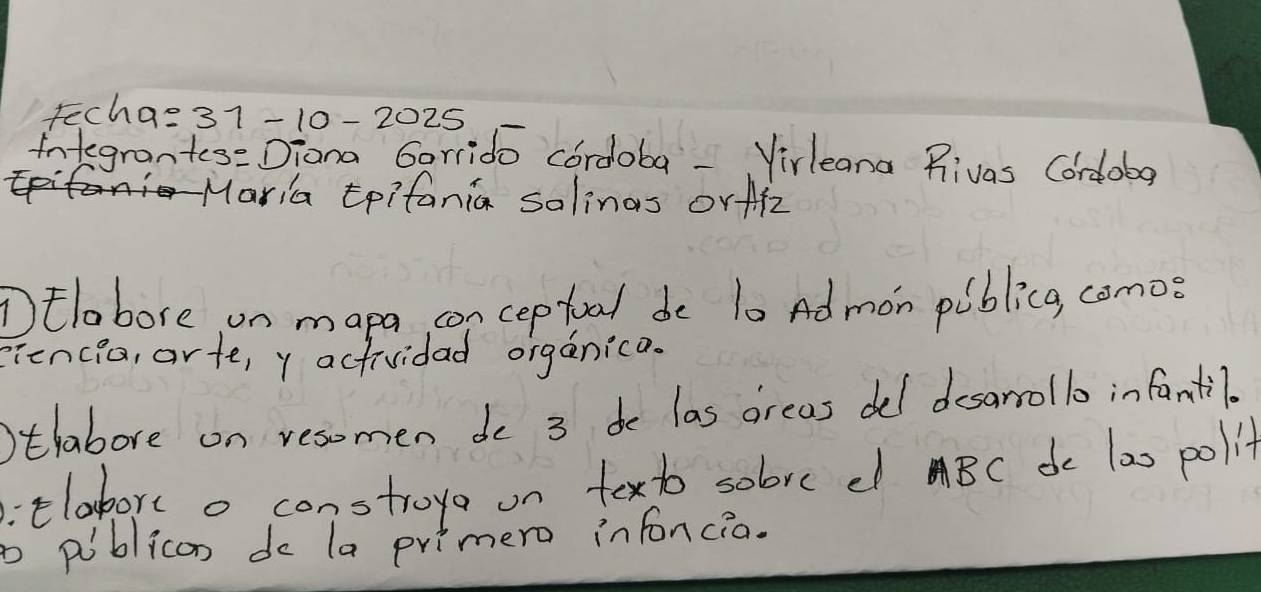 Fecha: 31-10-2025 -
Integrantes: Diana Garrido Córdoba - Yirleana Rivas Córdoba
Epifania María Epifanía Salinas Ortiz
1) Elabore un mapa conceptual de la Admón pública, como:
ciencia, arte, y actividad orgánica.
) Elabore un resumen de 3 de las áreas del desarrollo infantil.
). Elabore o construya un texto sobre el ABC de las polít
públicas de la primera infancia.